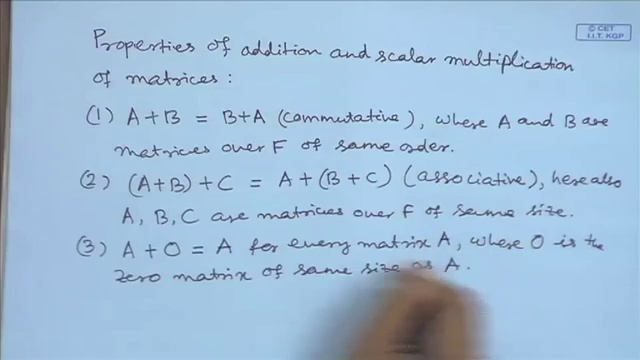 © CET
I.I.T. KGP
Properties of addition and scalar multiplication
of matrices :
(1) A+B = B+A (commutative), where A and B are
matrices over F of same order.
(2) (A+B)+C = A+(B+C) (associative), here also
A, B, C are matrices over F of same size.
(3) A+O = A for every matrix A, where O is the
zero matrix of same size as A.